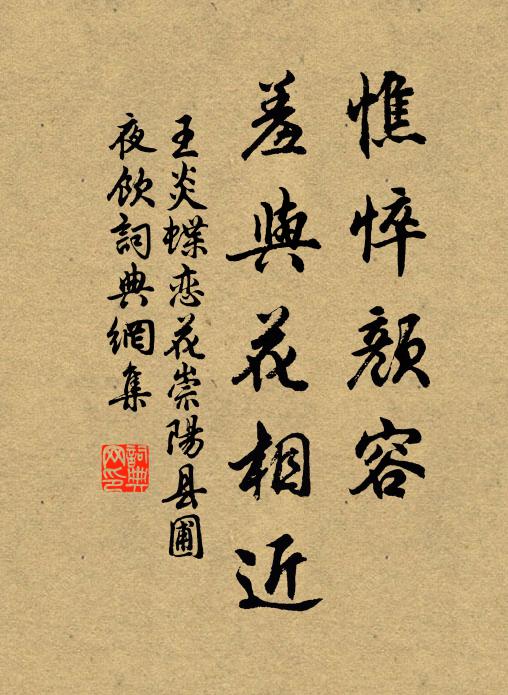 憔悴颜容
羞與花相近
王炎蝶恋花崇陽县圃
夜飲詞典網集
詞典网印